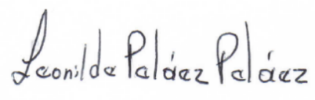 Leonilda Paláez Paláez